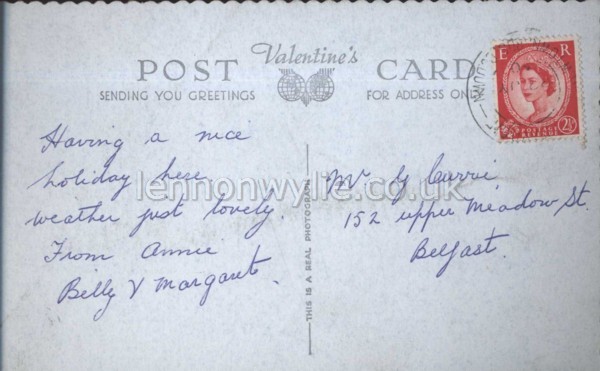 Valentine's
POST CARD
SENDING YOU GREETINGS FOR ADDRESS ONLY
E R
POSTAGE
REVENUE
2½D
Having a nice
holiday here
weather just lovely.
From Annie
Billy & Margaret.
THIS IS A REAL PHOTOGRAPH
Mr G Currie
152 upper Meadow St.
Belfast.
lennonwylie.co.uk